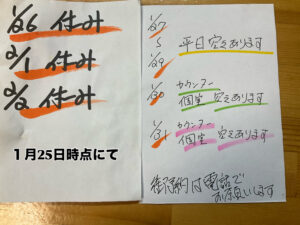 1/26 休み
2/1 休み
2/2 休み
1月25日時点にて
1/27
S
1/29
平日空きあります
1/30 カウンター
個室 空きあります
1/31 カウンター
個室 空きあります
御予約は電話で
お願いします